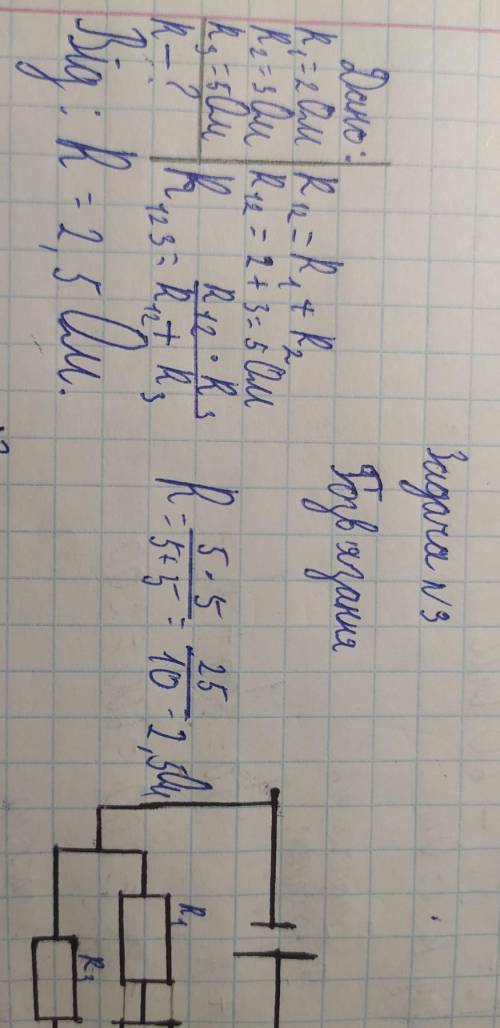 Задача №3
Дано:
Розв'язання
R₁ = 2 Ом
R₂ = 3 Ом
R₃ = 5 Ом
R - ?
R₁₂ = R₁ + R₂
R₁₂ = 2 + 3 = 5 Ом
R₁₂₃ = R₁₂ · R₃ / R₁₂ + R₃
R = 5 · 5 / 5 + 5 = 25 / 10 = 2,5 Ом
Від: R = 2,5 Ом.
R₁
R₃